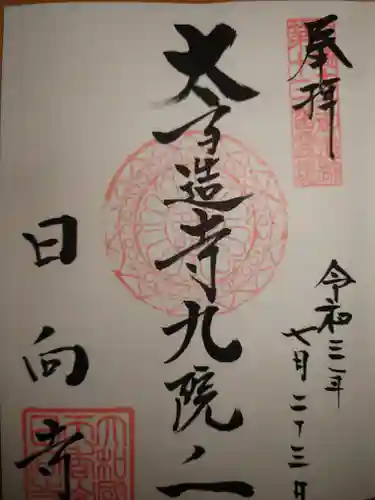 奉拝
令和三年
七月二十三日
太子造寺九院ノ一
日向寺